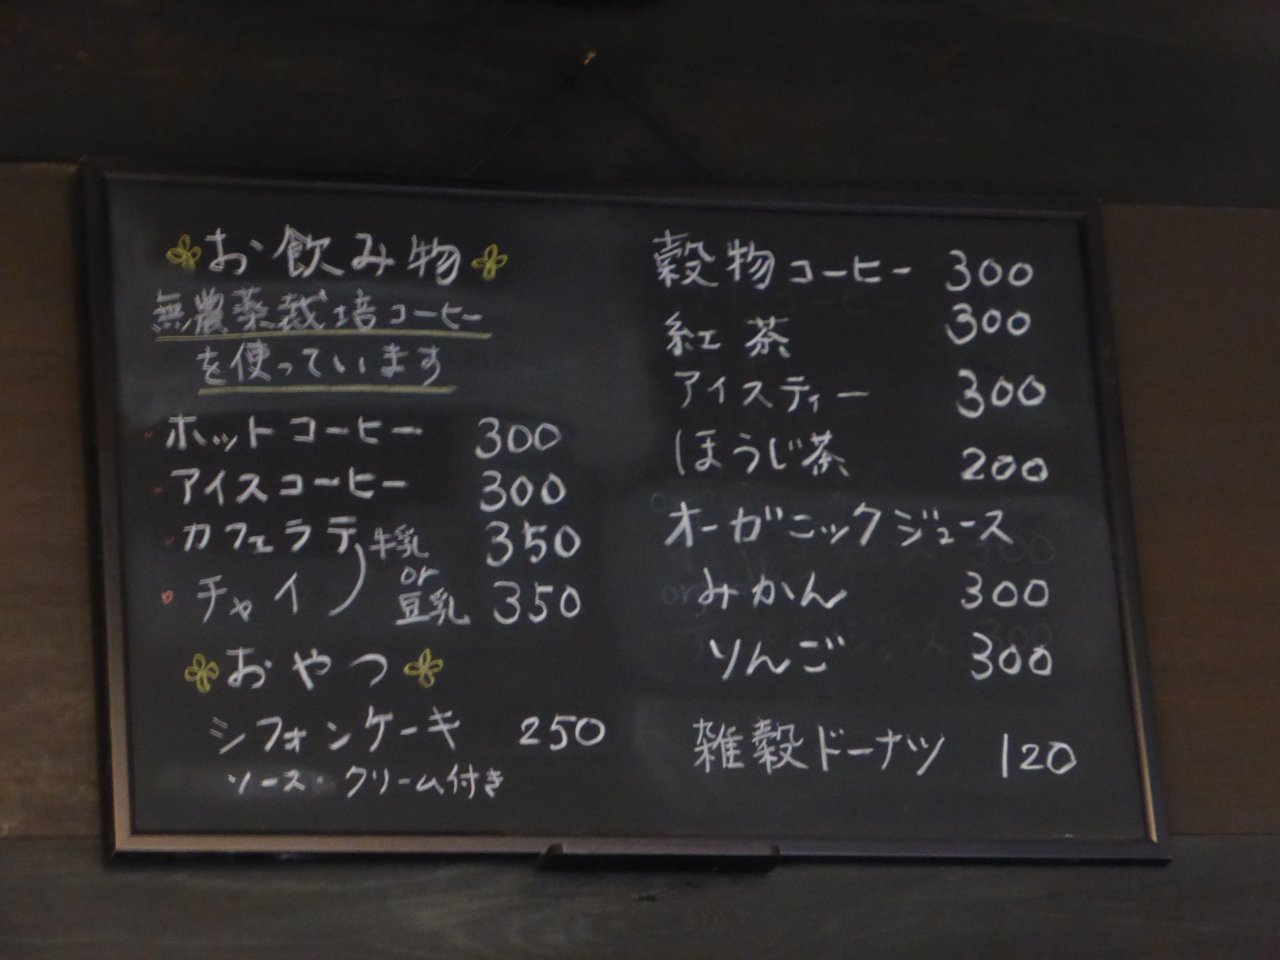 お飲み物
無農薬栽培コーヒー
を使っています
ホットコーヒー 300
アイスコーヒー 300
カフェラテ 350
チャイ 350
牛乳
or
豆乳
おやつ
シフォンケーキ 250
ソース・クリーム付き
穀物コーヒー 300
紅茶 300
アイスティー 300
ほうじ茶 200
オーガニックジュース
みかん 300
りんご 300
雑穀ドーナツ 120